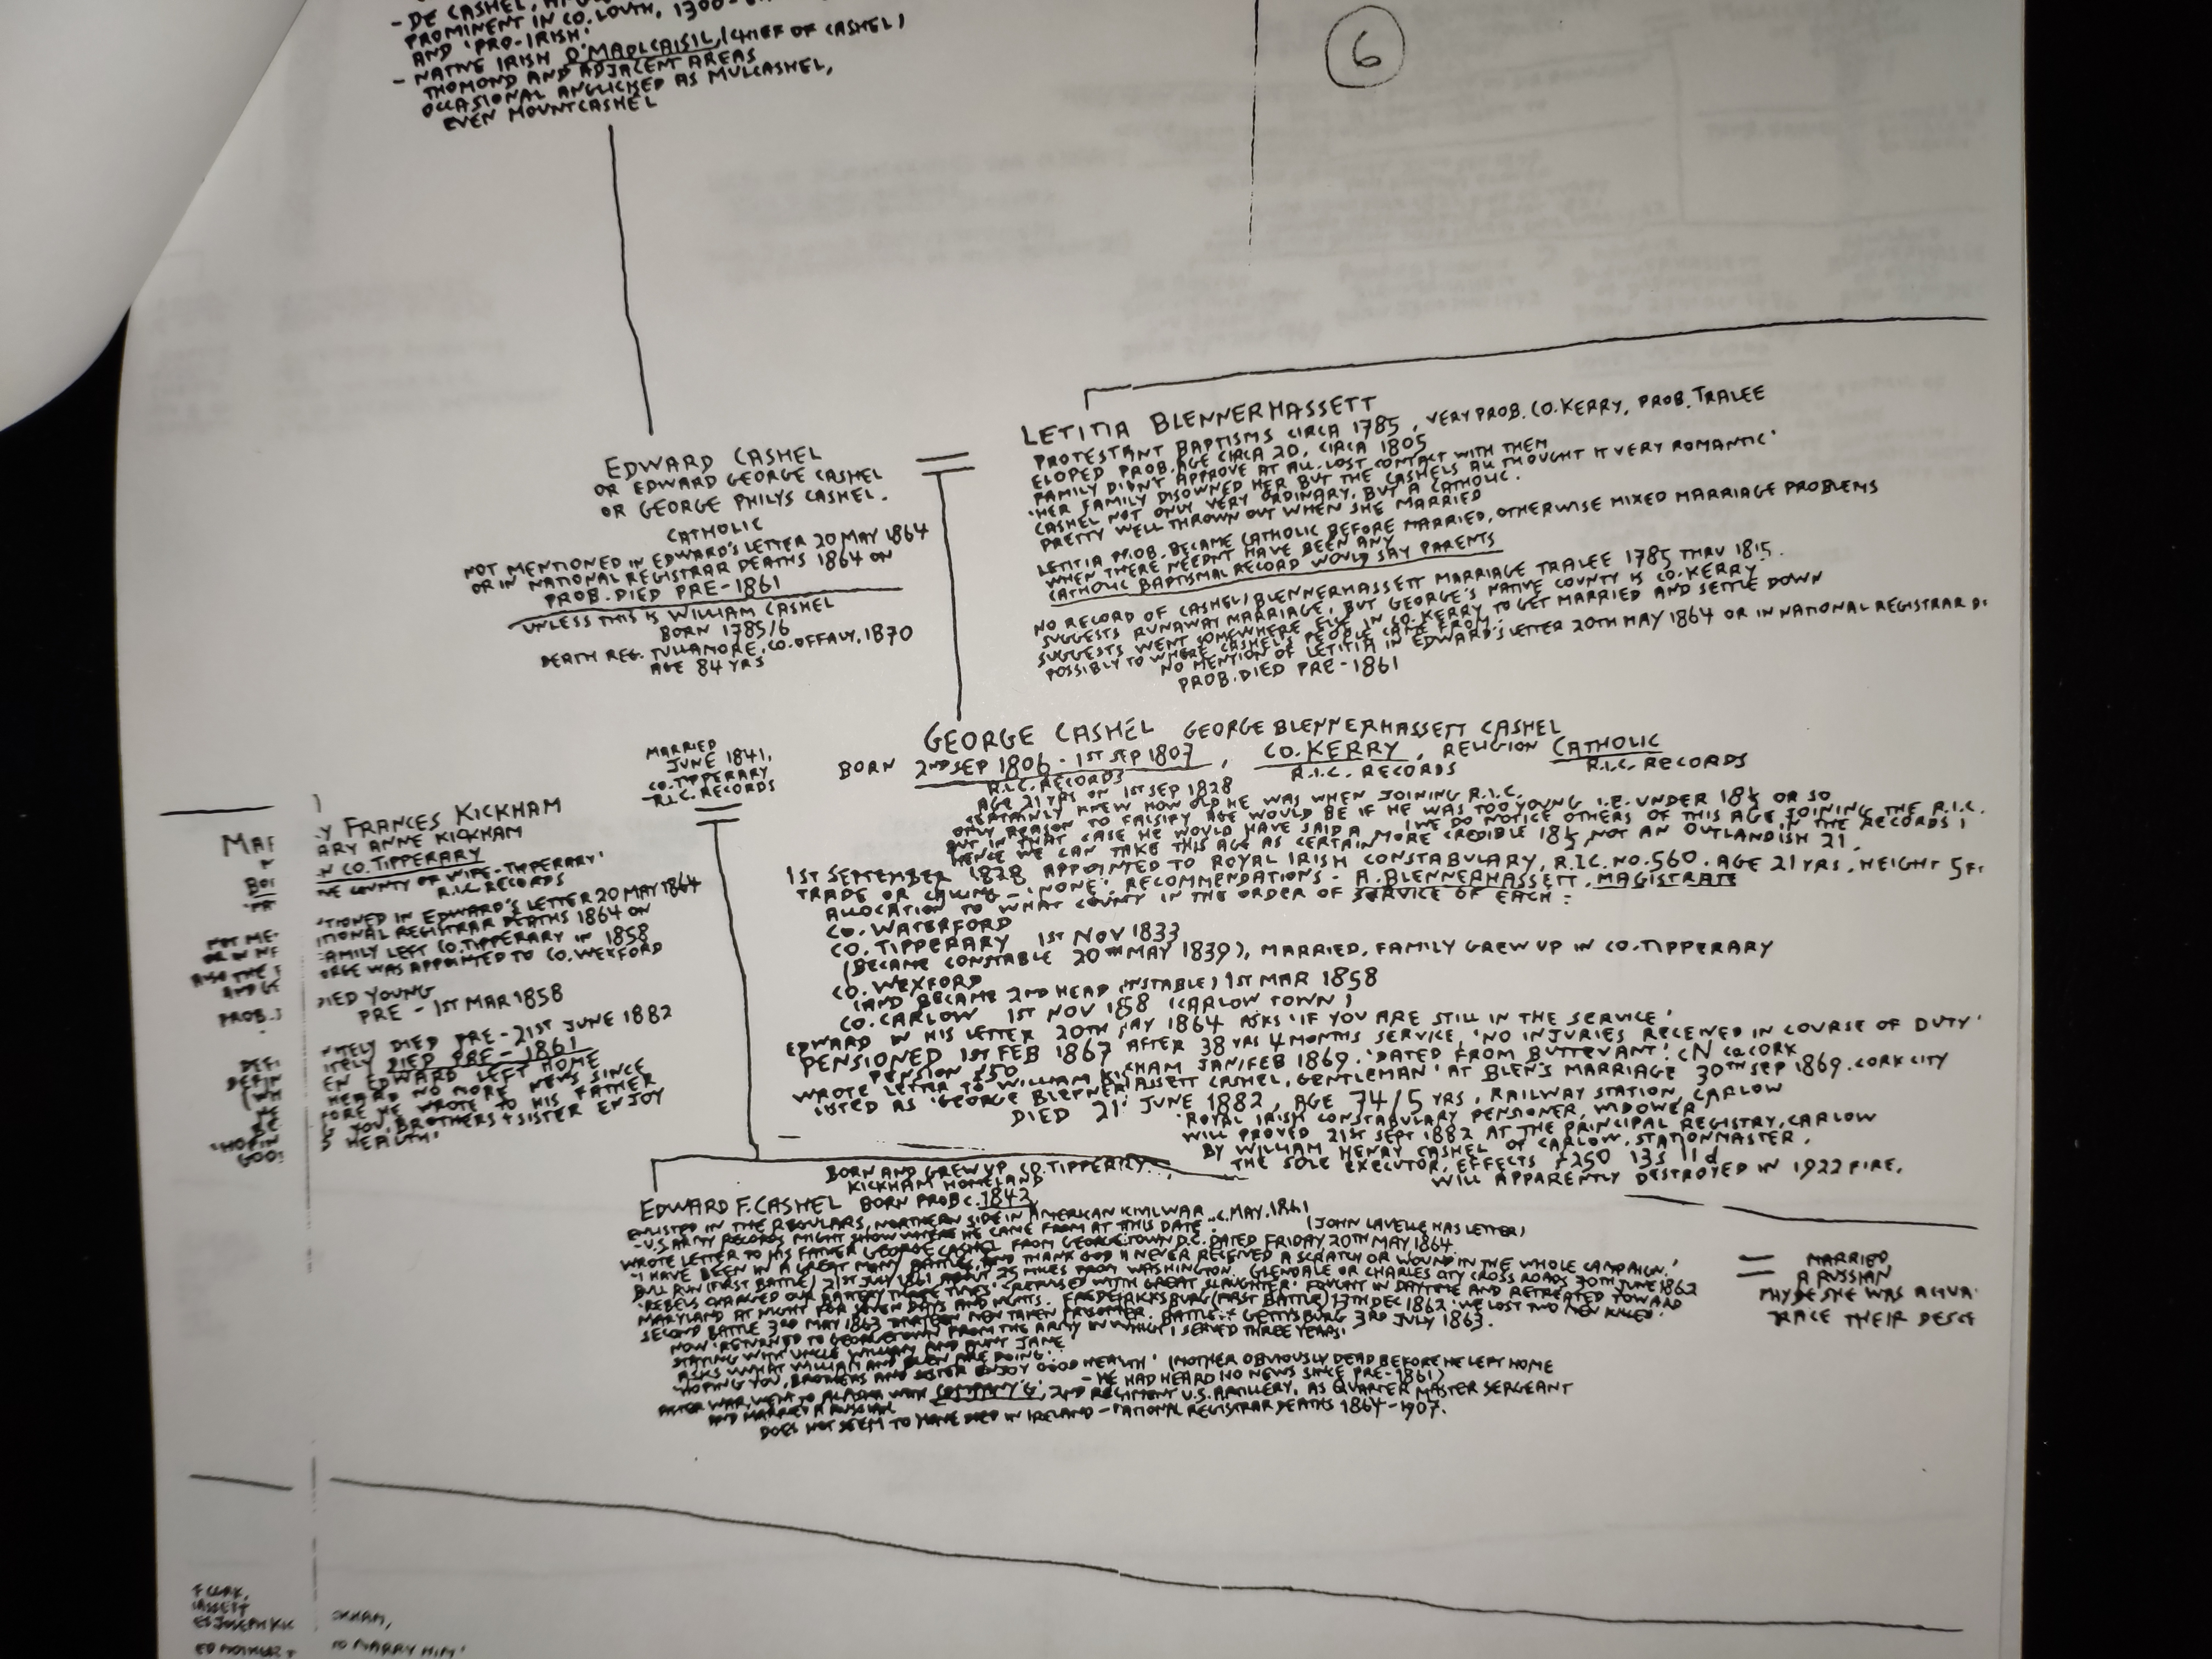 - DE CASHEL,
PROMINENT IN CO. LOUTH, 1300-
AND 'PRO-IRISH'
- NATIVE IRISH O'MAOLCAISIL, (CHIEF OF CASHEL)
THOMOND AND ADJACENT AREAS
OCCASIONAL ANGLICKED AS MULCASHEL,
EVEN MOUNTCASHEL
6
EDWARD CASHEL
OR EDWARD GEORGE CASHEL
OR GEORGE PHILYS CASHEL.
CATHOLIC
NOT MENTIONED IN EDWARD'S LETTER 20 MAY 1864
OR IN NATIONAL REGISTRAR DEATHS 1864 ON
PROB. DIED PRE-1861
UNLESS THIS IS WILLIAM CASHEL
BORN 1785/6
DEATH REG. TULLAMORE, CO. OFFALY, 1870
AGE 84 YRS
LETITIA BLENNERHASSETT
PROTESTANT BAPTISMS CIRCA 1785, VERY PROB. CO. KERRY, PROB. TRALEE
ELOPED PROB. AGE CIRCA 20, CIRCA 1805
FAMILY DIDN'T APPROVE AT ALL. LOST CONTACT WITH THEM
'HER FAMILY DISOWNED HER BUT THE CASHELS ALL THOUGHT IT VERY ROMANTIC'
CASHEL NOT ONLY VERY ORDINARY, BUT A CATHOLIC.
PRETTY WELL THROWN OUT WHEN SHE MARRIED
LETITIA PROB. BECAME CATHOLIC BEFORE MARRIED, OTHERWISE MIXED MARRIAGE PROBLEMS
WHEN THERE NEEDN'T HAVE BEEN ANY
CATHOLIC BAPTISMAL RECORD WOULD SAY PARENTS
NO RECORD OF CASHEL/BLENNERHASSETT MARRIAGE TRALEE 1785 THRU 1815.
SUGGESTS RUNAWAY MARRIAGE, BUT GEORGE'S NATIVE COUNTY IS CO. KERRY
SUGGESTS WENT SOMEWHERE ELSE IN CO. KERRY TO GET MARRIED AND SETTLE DOWN
POSSIBLY TO WHERE CASHEL'S PEOPLE CAME FROM.
NO MENTION OF LETITIA IN EDWARD'S LETTER 20TH MAY 1864 OR IN NATIONAL REGISTRAR D
PROB. DIED PRE-1861
GEORGE CASHEL GEORGE BLENNERHASSETT CASHEL
BORN 2ND SEP 1806 - 1ST SEP 1807, CO. KERRY, RELIGION CATHOLIC
R.I.C. RECORDS R.I.C. RECORDS R.I.C. RECORDS
AGE 21 YRS ON 1ST SEP 1828
CERTAINLY KNEW HOW OLD HE WAS WHEN JOINING R.I.C.
ONLY REASON TO FALSIFY AGE WOULD BE IF HE WAS TOO YOUNG I.E. UNDER 18½ OR SO
(WE DO NOTICE OTHERS OF THIS AGE JOINING THE R.I.C. IN THE RECORDS)
BUT IN THAT CASE HE WOULD HAVE SAID A MORE CREDIBLE 18½, NOT AN OUTLANDISH 21.
HENCE WE CAN TAKE THIS AGE AS CERTAIN
1ST SEPTEMBER 1828 APPOINTED TO ROYAL IRISH CONSTABULARY, R.I.C. NO. 560. AGE 21 YRS, HEIGHT 5 F
TRADE OR CALLING - 'NONE'. RECOMMENDATIONS - A. BLENNERHASSETT, MAGISTRATE
ALLOCATION TO WHAT COUNTY IN THE ORDER OF SERVICE OF EACH:
CO. WATERFORD
CO. TIPPERARY 1ST NOV 1833
(BECAME CONSTABLE 20TH MAY 1839), MARRIED, FAMILY GREW UP IN CO. TIPPERARY
CO. WEXFORD
(AND BECAME 2ND HEAD NSTABLE) 1ST MAR 1858
CO. CARLOW 1ST NOV 1858 (CARLOW TOWN)
EDWARD IN HIS LETTER 20TH MAY 1864 ASKS 'IF YOU ARE STILL IN THE SERVICE'
PENSIONED 1ST FEB 1867 AFTER 38 YRS 4 MONTHS SERVICE, 'NO INJURIES RECEIVED IN COURSE OF DUTY'
PENSION £50
WROTE LETTER TO WILLIAM KICKHAM JAN/FEB 1869. 'DATED FROM BUTTEVANT'. CN CO CORK
LISTED AS 'GEORGE BLENNERHASSETT CASHEL, GENTLEMAN' AT BLEN'S MARRIAGE 30TH SEP 1869. CORK CITY
DIED 21ST JUNE 1882, AGE 74/5 YRS, RAILWAY STATION, CARLOW
'ROYAL IRISH CONSTABULARY PENSIONER, WIDOWER'
WILL PROVED 21ST SEPT 1882 AT THE PRINCIPAL REGISTRY, CARLOW
BY WILLIAM HENRY CASHEL OF CARLOW, STATIONMASTER,
THE SOLE EXECUTOR, EFFECTS £250 13s 11d
WILL APPARENTLY DESTROYED IN 1922 FIRE.
MARRIED
JUNE 1841,
CO. TIPPERARY
R.I.C. RECORDS
MAR Y FRANCES KICKHAM
ARY ANNE KICKHAM
N CO. TIPPERARY
VE COUNTY OF WIFE - TIPPERARY'
R.I.C. RECORDS
NOT ME TIONED IN EDWARD'S LETTER 20 MAY 1864
OR IN N TIONAL REGISTRAR DEATHS 1864 ON
ALSO THE F AMILY LEFT CO. TIPPERARY IN 1858
AND GE ORGE WAS APPOINTED TO CO. WEXFORD
PROB. DIED YOUNG
PRE - 1ST MAR 1858
DEFI NITELY DIED PRE-21ST JUNE 1882
DEFIN ITELY DIED PRE-1861
(WH EN EDWARD LEFT HOME
HE HEARD NO MORE NEWS SINCE
BE FORE HE WROTE TO HIS FATHER
'HOPIN G YOU, BROTHERS + SISTER ENJOY
GOO D HEALTH'
BORN AND GREW UP CO. TIPPERARY
KICKHAM HOMELAND
EDWARD F. CASHEL BORN PROB c. 1842
ENLISTED IN THE REGULARS, NORTHERN SIDE IN AMERICAN KIVIL WAR c. MAY, 1861
- U.S. ARMY RECORDS MIGHT SHOW WHERE HE CAME FROM AT THIS DATE. (JOHN LAVELLE HAS LETTER)
WROTE LETTER TO HIS FATHER GEORGE CASHEL FROM GEORGETOWN D.C. DATED FRIDAY 20TH MAY 1864
'I HAVE BEEN IN A GREAT MANY BATTLES, AND THANK GOD I NEVER RECEIVED A SCRATCH OR WOUND IN THE WHOLE CAMPAIGN.'
BULL RUN (FIRST BATTLE) 21ST JULY 1861 ABOUT 25 MILES FROM WASHINGTON. GLENDALE OR CHARLES CITY CROSS ROADS 30TH JUNE 1862
'REBELS CHARGED OUR BATTERY THREE TIMES'. 'REPULSED WITH GREAT SLAUGHTER'. FOUGHT IN DAYTIME AND RETREATED TOWARD
MARYLAND AT NIGHT FOR SEVEN DAYS AND NIGHTS. FREDERICKSBURG (FIRST BATTLE) 13TH DEC 1862 'WE LOST TWO MEN KILLED.'
SECOND BATTLE 3RD MAY 1863 MEN TAKEN PRISONER. BATTLE OF GETTYSBURG 3RD JULY 1863.
NOW 'RETURNED TO GEORGETOWN FROM THE ARMY IN WHICH I SERVED THREE YEARS'
STAYING WITH UNCLE WILLIAM AND AUNT JANE
ASKS WHAT WILLIAM AND BLEN ARE DOING.
'HOPING YOU, BROTHERS AND SISTER ENJOY GOOD HEALTH' (MOTHER OBVIOUSLY DEAD BEFORE HE LEFT HOME
- HE HAD HEARD NO NEWS SINCE PRE-1861)
AFTER WAR, WENT TO ALASKA WITH COMPANY 'G', 2ND REGIMENT U.S. ARTILLERY, AS QUARTER MASTER SERGEANT
AND MARRIED A RUSSIAN
DOES NOT SEEM TO HAVE DIED IN IRELAND - NATIONAL REGISTRAR DEATHS 1864-1907.
MARRIED
A RUSSIAN
MAYBE SHE WAS A
TRACE THEIR DESCE
ED JOSEPH KIC KHAM,
TO MARRY HIM'